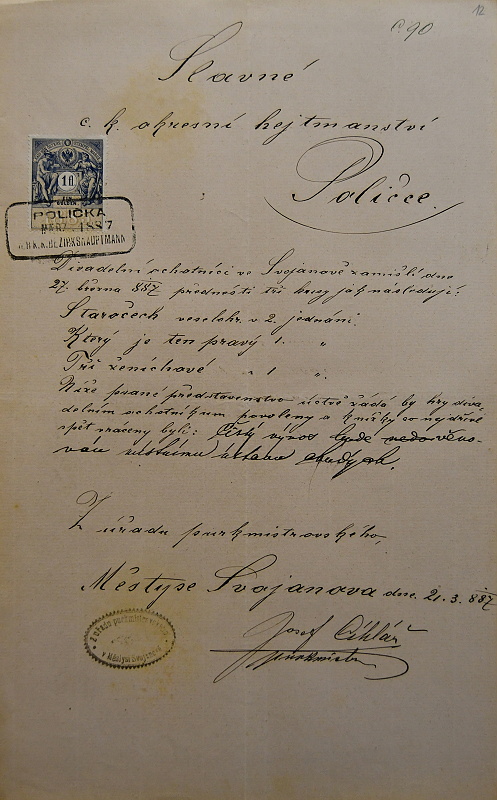 12
C. 90
Slavné
c. k. okresní hejtmanství
Poličce.
10
POLICKA
MÄRZ 1887
K.K. BEZIRKSHAUPTMANN
Divadelní ochotníci ve Svojanově zamíšlí dne
27. března 887 přednésti tři kusy jak následují:
Staročech veselohr. v 2. jednání.
Který je ten pravý 1. "
Tři ženichové 1 "
Níže psané představenstvo uctivě žádá by hry diva-
delním ochotníkum povoleny a knížky co nejdříve
zpět vráceny byli: Čistý výnos bude
místnímu ústavu chudých.
Z úřadu purkmistrovského,
Městyse Svojanova dne 21. 3. 887
Josef Cihlář
purkmistr
Z úřadu purkmistrovského
v Městysi Svojanově